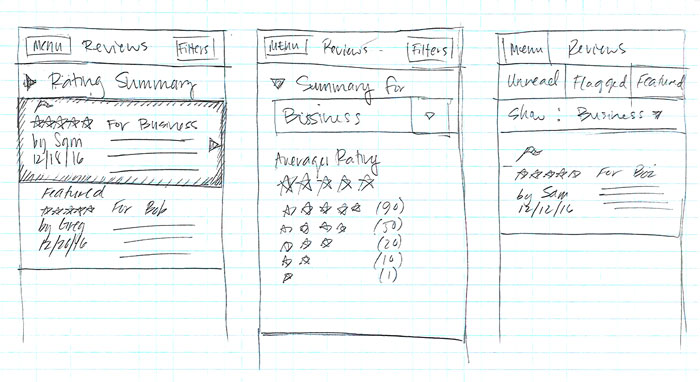 Menu Reviews Filters
Rating Summary
For Business
by Sam
12/18/16
Featured
For Bob
by Greg
12/26/16
Menu Reviews Filters
Summary for
Business
Average Rating
(90)
(50)
(20)
(10)
(1)
Menu Reviews
Unread Flagged Featured
Show: Business
For Biz
by Sam
12/12/16